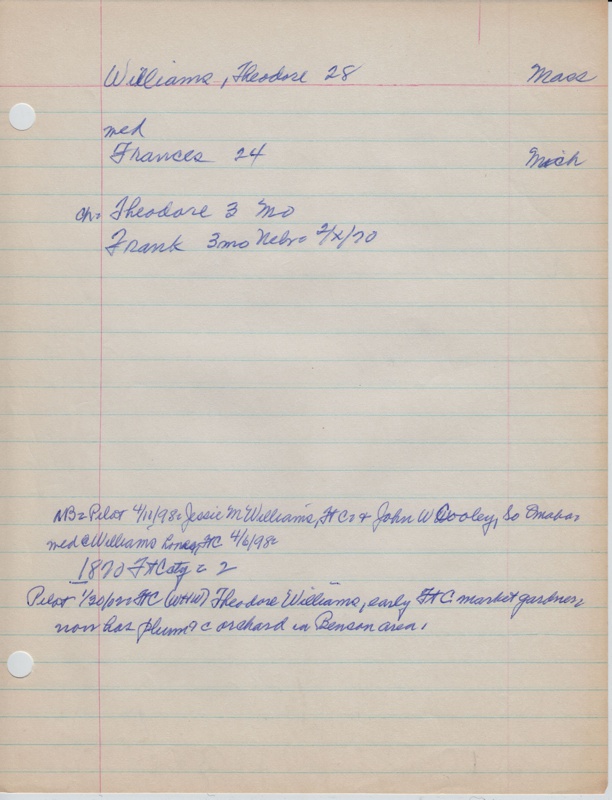 Williams, Theodore 28 Mass
med
Frances 24 Mich
ch= Theodore 3 Mo
Frank 3mo Nebr= 2/x/70
NB= Pilot 4/11/98= Jessie M Williams, Ft C= + John W Dooley, So Omaha=
med @ Williams FtC 4/6/98=
1870 Ft Caty = 2
Pilot 1/20/02= Ft C (WHW) Theodore Williams, early Ft C. market gardner,
now has plum & c orchard in Benson area.